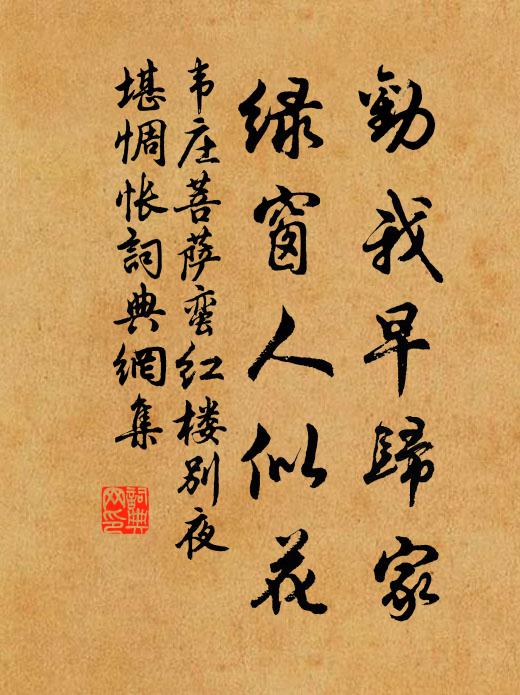 勸我早歸家
绿窗人似花
韦庄菩萨蛮红楼别夜
堪惆怅詞典網集
詞典网印